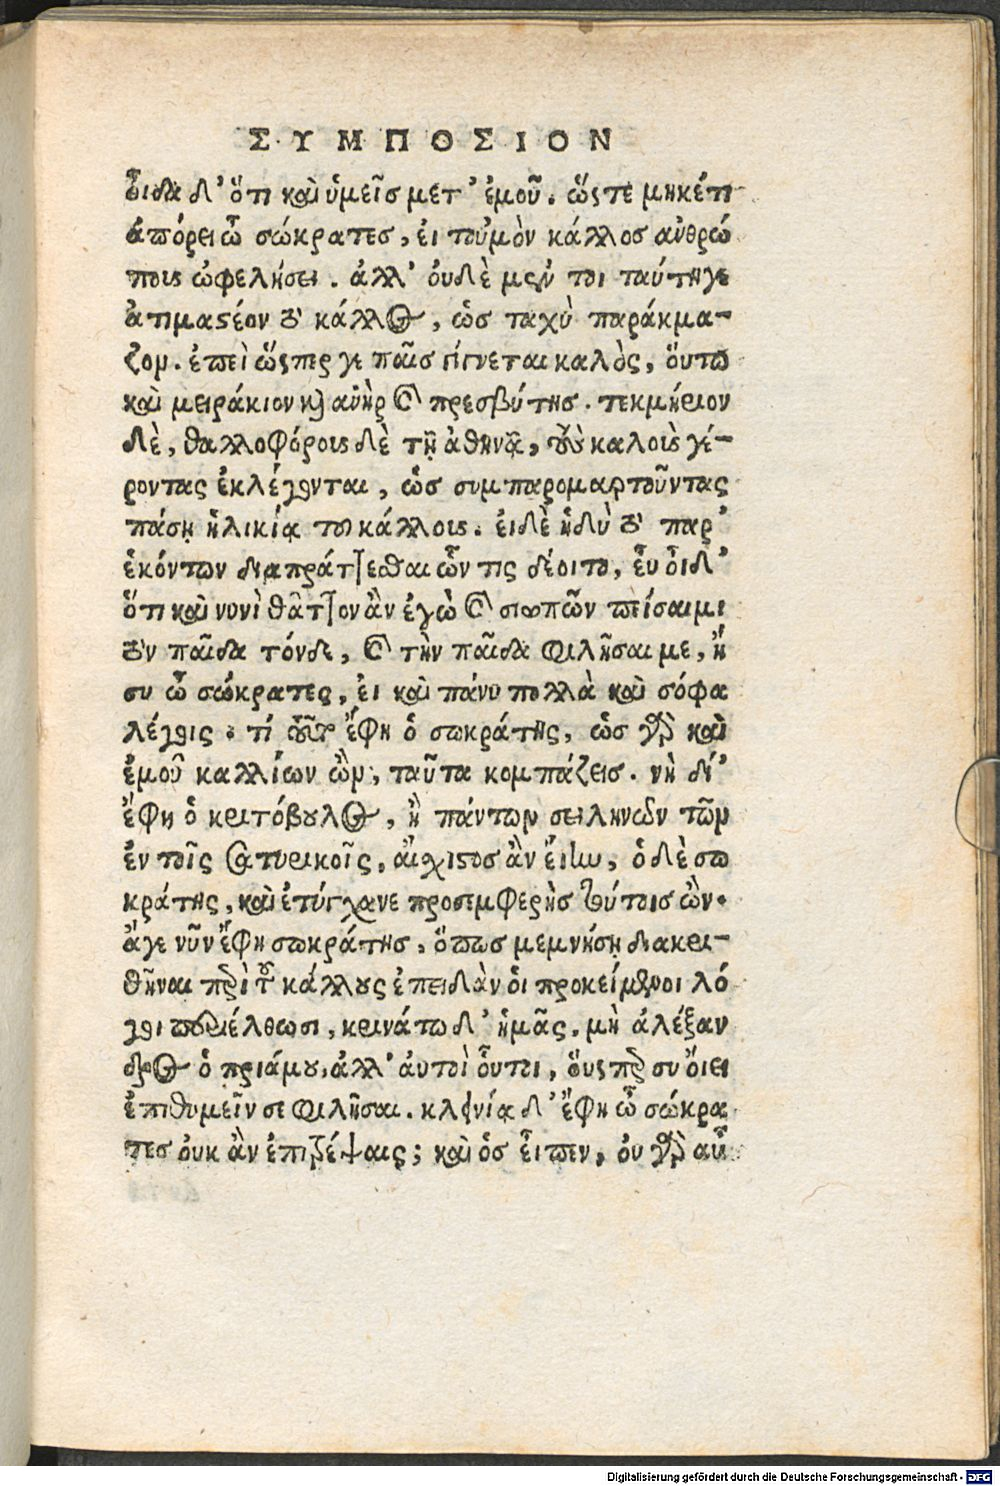 ΣΥΜΠΟΣΙΟΝ
οἶδα δ' ὅτι καὶ ὑμεῖς μετ' ἐμοῦ. ὥςτε μηκέτι
ἀπόρει ὦ σώκρατες, ἐι τοὐμὸν κάλλος ανθρώ
ποις ὠφελήσει. ἀλλ' ὀυδὲ μὴν τοι ταύτῃγε
ἀτιμαστέον τὸ κάλλος, ὡς ταχὺ παράκμα-
ζον. ἐπεὶ ὥςπερ γε παῖς γίγνεται καλὸς, ὅυτω
καὶ μειράκιον καὶ ανὴρ καὶ πρεσβύτης. τεκμήριον
δὲ, θαλλοφόροις δὲ τῇ ἀθηνᾷ, τοὺς καλοὺς γέ-
ροντας ἐκλέγονται, ὡς συμπαρομαρτοῦντας
πάσῃ ἡλικίᾳ του κάλλους. ἐι δὲ ἡδὺ τὸ παρ'
ἑκόντων διαπράττεσθαι ὧν τις δέοιτο, ἐυ οἶδ'
ὅτι καὶ νυνὶ θᾶττον ἂν ἐγὼ καὶ σιωπῶν πείσαιμι
τὸν παῖδα τόνδε, καὶ τὴν παῖδα φιλῆσαι με, ἢ
συ ὦ σώκρατες, ἐι καὶ πάνυ πολλὰ καὶ σόφα
λέγεις. τί τοῦτ' ἔφη ὁ σωκράτης, ὡς γὰρ καὶ
ἐμοῦ καλλίων ὢν, ταῦτα κομπάζεις. νὴ δί'
ἔφη ὁ κριτόβουλος, ἢ πάντων σειληνῶν τῶν
ἐν τοῖς Σατυρικοῖς, αἴσχιστος ἂν ἔιην, ὁ δὲ σω
κράτης, καὶ ἐτύγχανε προσεμφερὴς τούτοις ὤν.
ἄγε νῦν ἔφη σωκράτης, ὅπως μεμνήσῃ διακρι-
θῆναι περὶ τοῦ κάλλους ἐπειδὰν ὁι προκείμενοι λό
γοι περιέλθωσι, κρινάτω δ' ἡμᾶς, μὴ ἀλέξαν
δρος ὁ πριάμου, ἀλλ' ἀυτοὶ οὗτοι, ὅυςπερ συ ὄιει
ἐπιθυμεῖν σε φιλῆσαι. κλεινίᾳ δ' ἔφη ὦ σώκρα
τες ὀυκ ἂν ἐπιτρέψαις; καὶ ὃς εἶπεν, ὀυ γὰρ αὖ
Digitalisierung gefördert durch die Deutsche Forschungsgemeinschaft - DFG